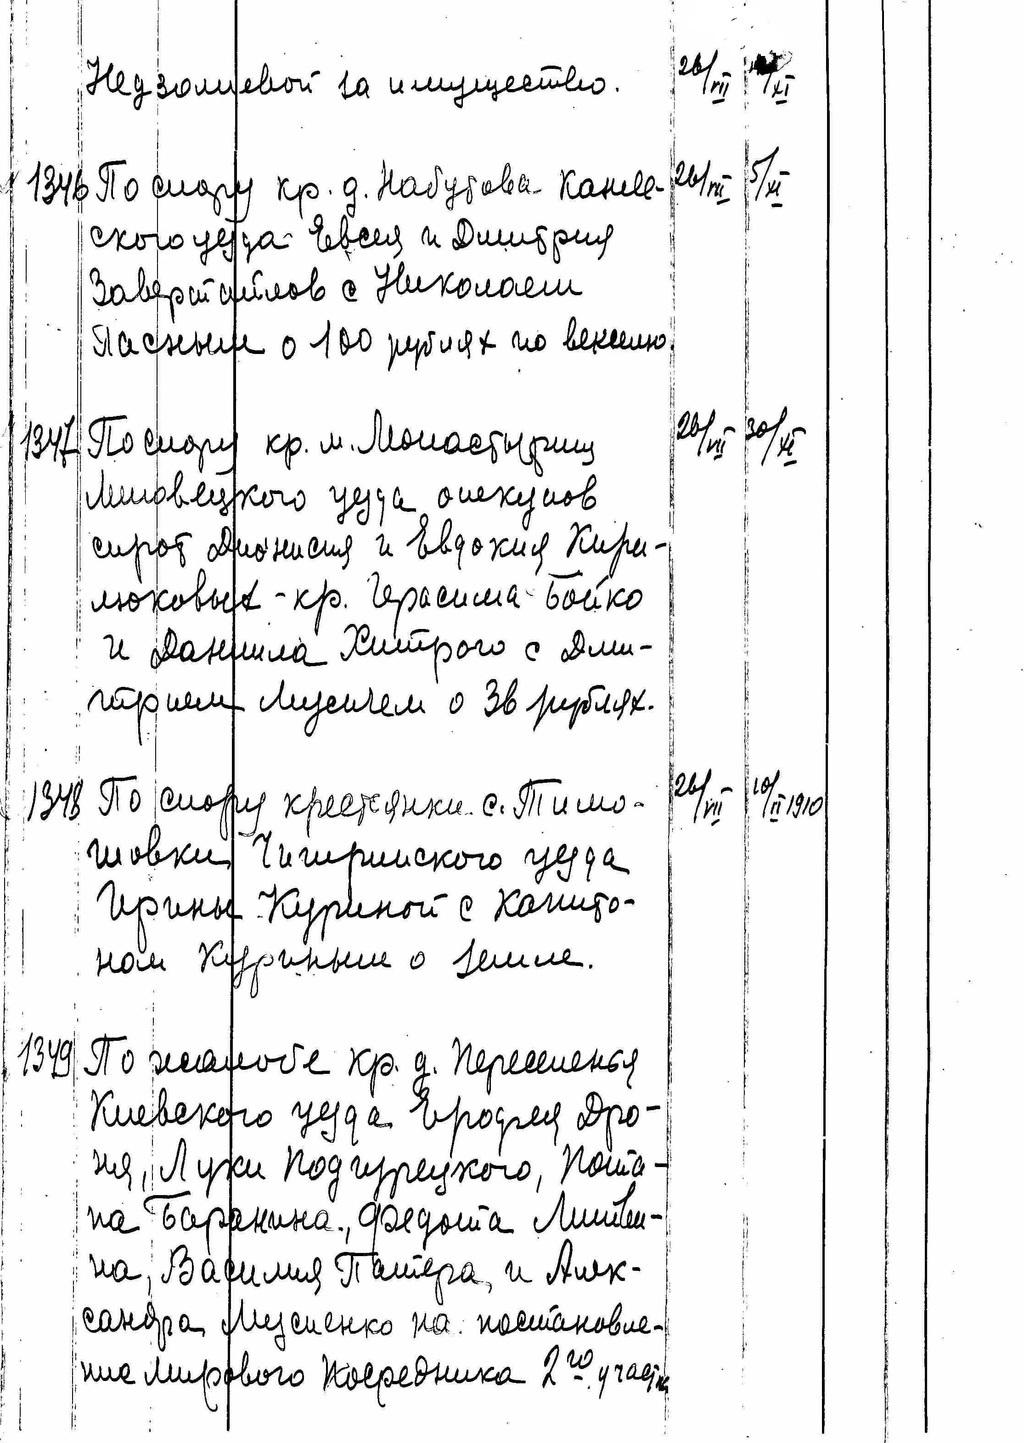 Недзолиевой за имущество. 26/VII /XI
1346 По спору кр. д. Набутова Канев- 26/VII 5/XI
ского уезда Евсея и Дмитрия
Завертайлов с Николаем
Пасным о 100 рублях по векселю.
1347 По спору кр. м. Монастырищ 26/VII 30/XI
Липовецкого уезда опекунов
сирот Дионисия и Евдокия Кири-
люковых - кр. Герасима Бойко
и Даниила Хитрого с Дми-
трием Мусием о 36 рублях.
1348 По спору крестянки с. Тимо- 26/VII 10/II 1910
шовки Чигиринского уезда
Ирины Куриной с Капито-
ном Куриным о земле.
1349 По жалобе кр. д.
Киевского уезда Ерофея Дро-
ня, Луки Подгурецкого, Пота-
па Баранина, Федота Литви-
на, Василия Патера, и Алек-
сандра Мусиенко на постановле-
ние Мирового Посредника 2го участка